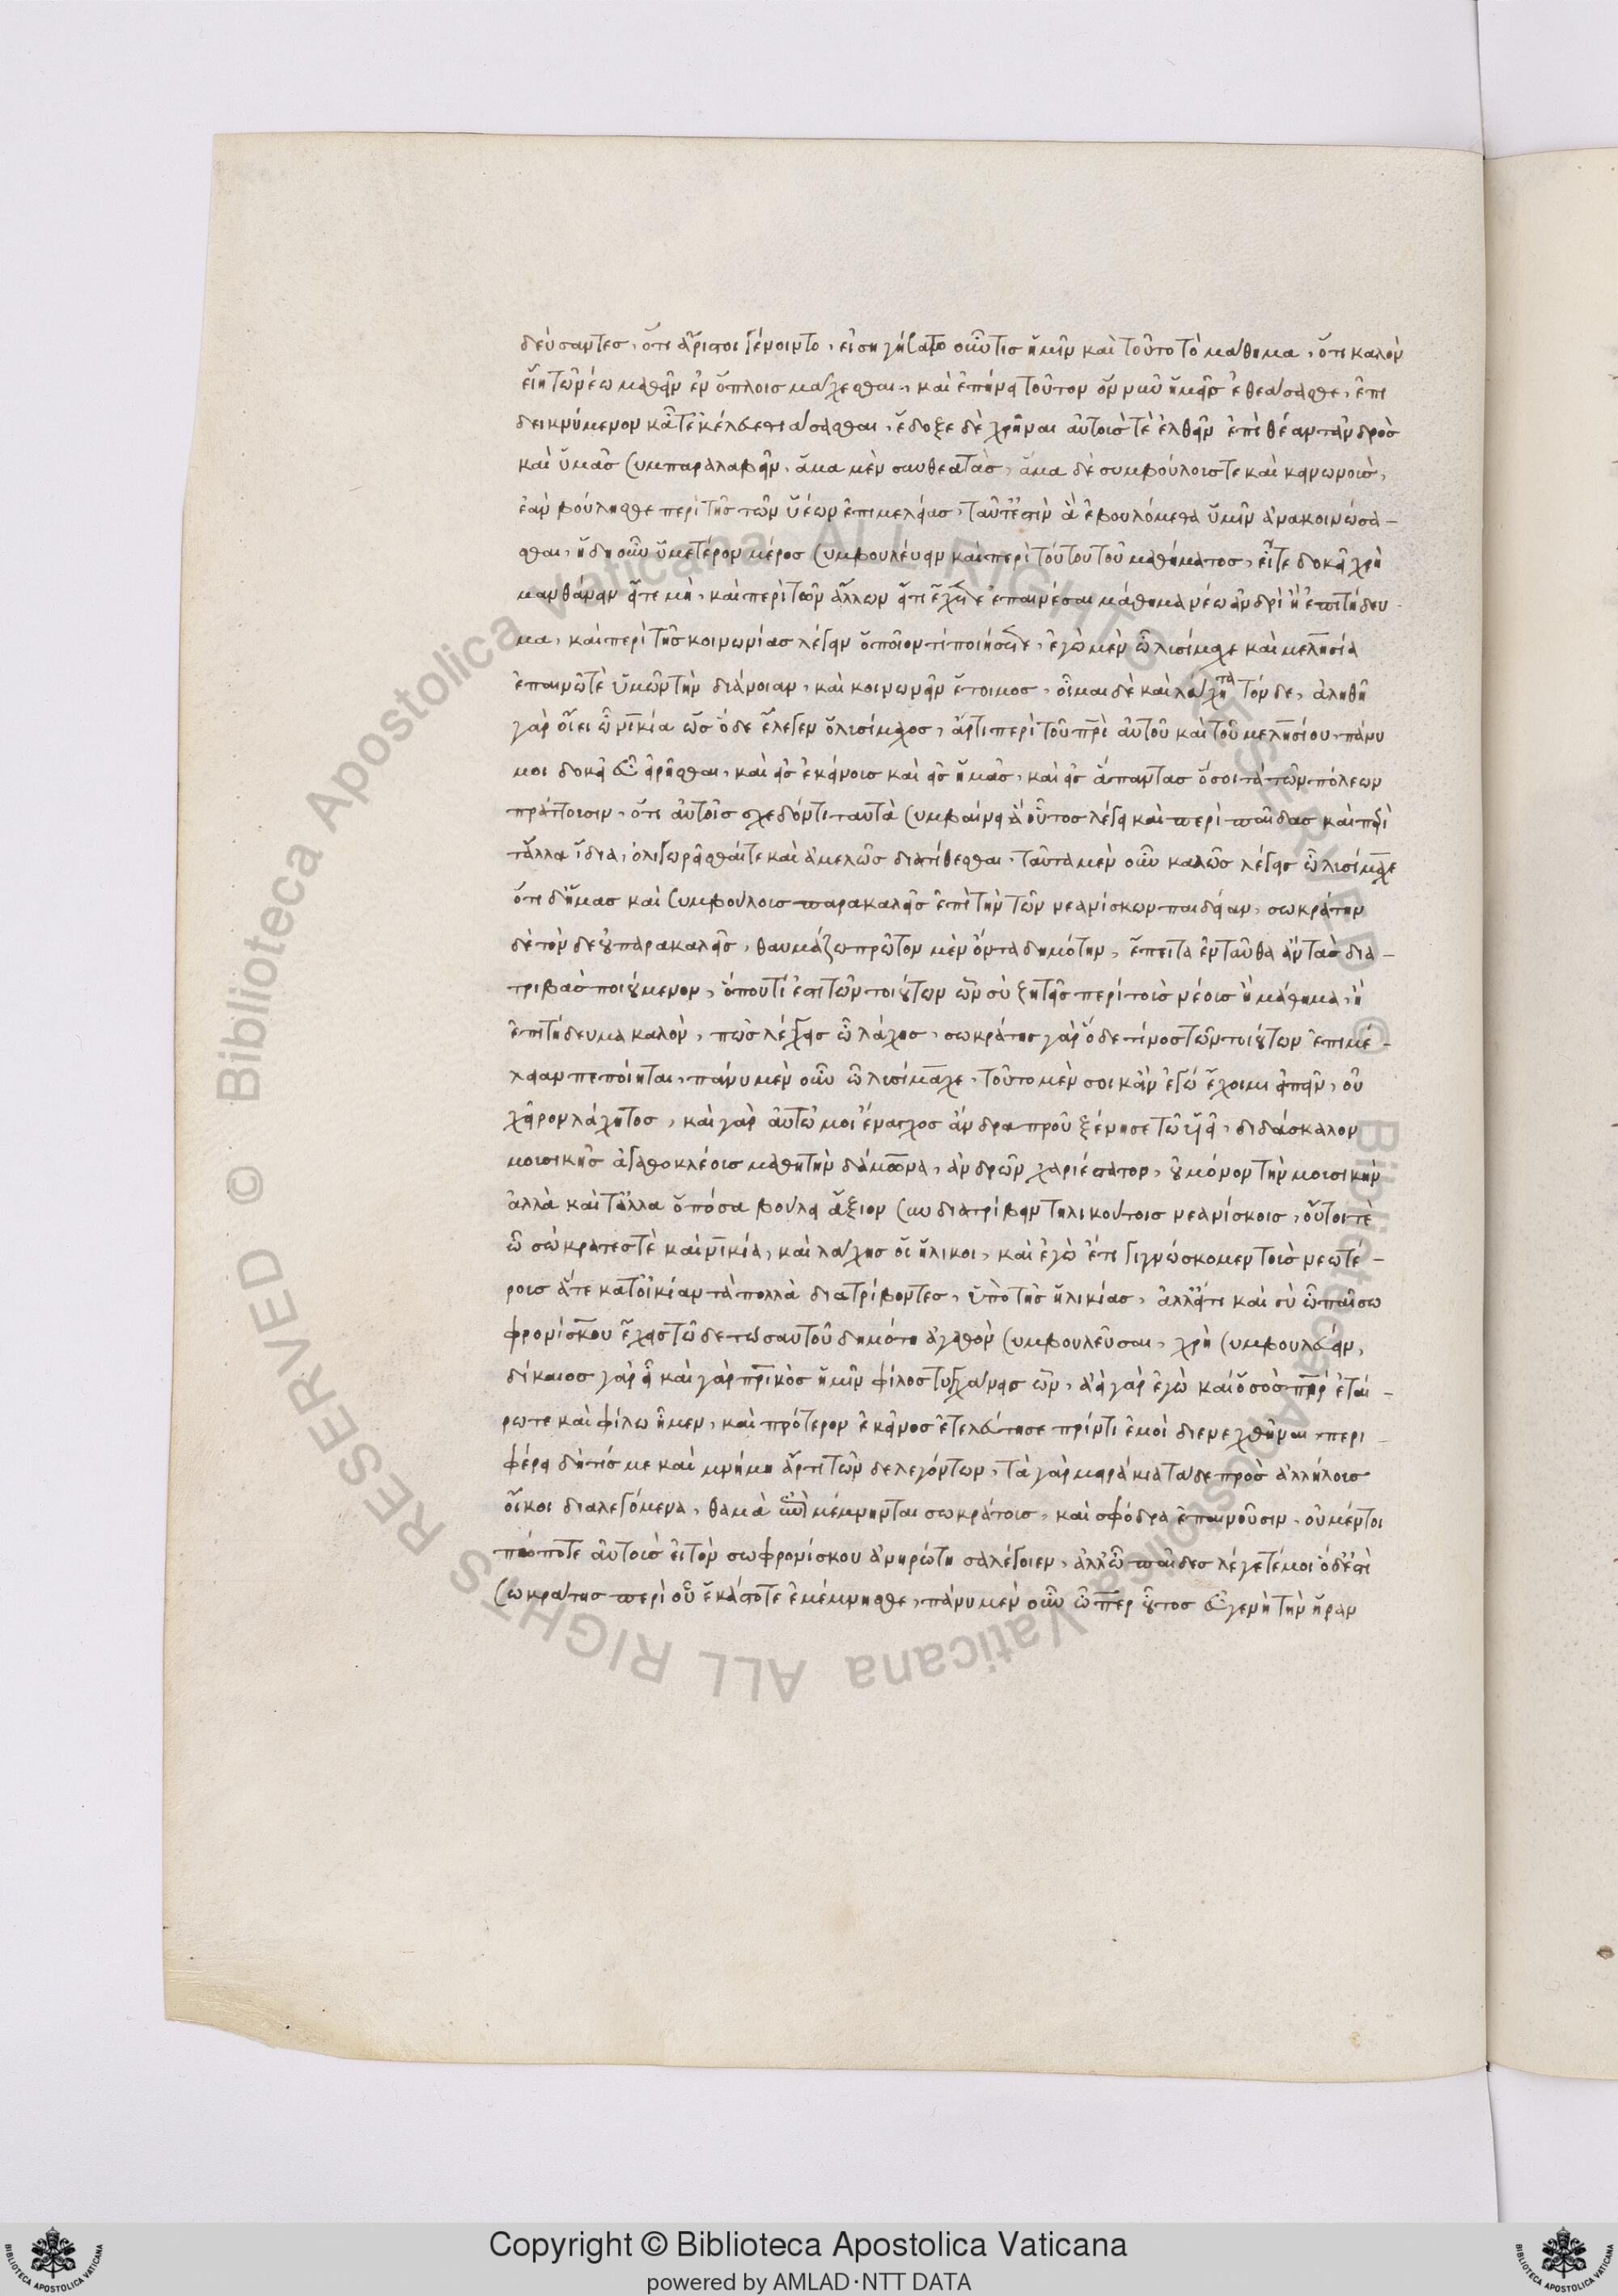 δεύσαντες, ὅτι ἄριστοι γένοιντο, εἰσηγήσατο οὖν τις ἡμῖν καὶ τοῦτο τὸ μάθημα, ὅτι καλὸν
εἴη τῶ νέω μαθεῖν ἐν ὅπλοις μάχεσθαι, καὶ ἐπήνει τοῦτον ὃν νῦν ἡμεῖς ἐθεάσασθε, ἐπι
δεικνύμενον κᾆτ' ἐκέλευε θεάσασθαι, ἔδοξε δὲ χρῆναι αὐτούς τὲ ἐλθεῖν ἐπὶ θέαν τἀνδρὸς
καὶ ὑμᾶς συμπαραλαβεῖν, ἅμα μὲν συνθεατὰς, ἅμα δὲ συμβούλους τε καὶ κοινωνοὺς,
ἐὰν βούλησθε περὶ τῆς τῶν ὑέων ἐπιμελείας, ταῦτ' ἐστὶν ἃ ἐβουλόμεθα ὑμῖν ἀνακοινώσα-
σθαι, ἤδη οὖν ὑμετέρον μέρος συμβουλεύειν καὶ περὶ τούτου τοῦ μαθήματος, εἴτε δοκεῖ χρῆ
μανθάνειν εἴτε μὴ, καὶ περὶ τῶν ἄλλων εἴτι ἔχετε ἐπαινέσαι μάθημα νέω ἀνδρὶ ἢ ἐπιτήδευ-
μα, καὶ περὶ τῆς κοινωνίας λέγειν ὁποῖόν τι ποιήσετε, ἐγὼ μὲν ὦ λυσίμαχε καὶ μελησία
ἐπαινῶ τὲ ὑμῶν τὴν διάνοιαν, καὶ κοινωνεῖν ἕτοιμος, οἶμαι δὲ καὶ λάχητα τόνδε, ἀληθῆ
γὰρ οἴει ὦ νικία ὡς ὅδε ἔλεγεν ὁ λυσίμαχος, ἄρτι περὶ τοῦ πρὶ αὐτοῦ καὶ τοῦ μελησίου, πάνυ
μοι δοκεῖ εὖ εἰρῆσθαι, καὶ εἰς ἐκείνους καὶ εἰς ἡμᾶς, καὶ εἰς ἅπαντας ὅσοι τὰ τῶν πόλεων
πράττουσιν, ὅτι αὐτοῖς σχεδόν τι ταυτὰ συμβαίνει ἃ οὗτος λέγει καὶ περὶ παῖδας καὶ περὶ
τἄλλα ἴδια, ὀλιγωρεῖσθαί τε καὶ ἀμελῶς διατίθεσθαι, ταῦτα μὲν οὖν καλῶς λέγεις ὦ λυσίμαχε
ὅτι δ' ἡμας καὶ συμβούλους παρακαλεῖς ἐπὶ τὴν τῶν νεανίσκων παιδείαν, σωκράτην
δὲ τόνδε οὐ παρακαλεῖς, θαυμάζω πρῶτον μὲν ὄντα δημότην, ἔπειτα ἐνταῦθα ἀεὶ τὰς δια-
τριβὰς ποιούμενον, ὅπου τί ἐστι τῶν τοιούτων ὧν σὺ ζητεῖς περὶ τοὺς νέους ἢ μάθημα, ἢ
ἐπιτήδευμα καλὸν, πῶς λέγεις ὦ λάχης, σωκράτης γὰρ ὅδε τίνος τῶν τοιούτων ἐπιμέ-
λειαν πεποίηται, πάνυ μὲν οὖν ὦ λυσίμαχε, τοῦτο μέν σοι κἂν ἐγώ ἔχοιμι εἰπεῖν, οὐ
χεῖρον λάχητος, καὶ γὰρ αὐτῶ μοι ἔναγχος ἄνδρα προὐξένησε τῶ υἱεῖ, διδάσκαλον
μουσικῆς ἀγαθοκλέους μαθητὴν δάμωνα, ἀνδρῶν χαριέστατον, οὐ μόνον τὴν μουσικὴν
ἀλλὰ καὶ τἄλλα ὁπόσα βούλει ἄξιον συνδιατρίβειν τηλικούτοις νεανίσκοις, οὔτοι τὲ
ὦ σώκρατές τὲ καὶ νικία, καὶ λάχης οἱ ἡλίκοι, καὶ ἐγὼ ἔτι γιγνώσκομεν τοὺς νεωτέ-
ρους ἅτε κατ' οἰκίαν τὰ πολλὰ διατρίβοντες, ὑπὸ τῆς ἡλικίας, ἀλλ' εἴτι καὶ σὺ ὦ παῖ σω
φρονίσκου ἔχεις τῶδε τῶ σαυτοῦ δημότη ἀγαθὸν συμβουλεῦσαι, χρὴ συμβουλεύειν,
δίκαιος γὰρ εἶ καὶ γὰρ πρικὸς ἡμῖν φίλος τυγχάνεις ὢν, ἀεὶ γὰρ ἐγὼ καὶ ὁ σὸς πατὴρ ἑταί-
ρω τε καὶ φίλω ἦμεν, καὶ πρότερον ἐκεῖνος ἐτελεύτησε πρίν τι ἐμοὶ διενεχθῆναι, περι-
φέρει δή τίς με καὶ μνήμη ἄρτι τῶνδε λεγόντων, τὰ γὰρ μειράκια τάδε πρὸς ἀλλήλους
οἴκοι διαλεγόμενα, θαμὰ μέμνηνται σωκράτους, καὶ σφόδρα ἐπαινοῦσιν, οὐ μέντοι
πώποτε αὐτοὺς εἰ τὸν σωφρονίσκου ἀνηρώτησα λέγοιεν, ἀλλ' ὦ παῖδες λέγετέ μοι ὅδ' ἐστὶ
σωκράτης περὶ οὗ ἑκάστοτε ἐμέμνησθε, πάνυ μὲν οὖν ὦ περ οὗτος εὖ γε νὴ τὴν ἥραν